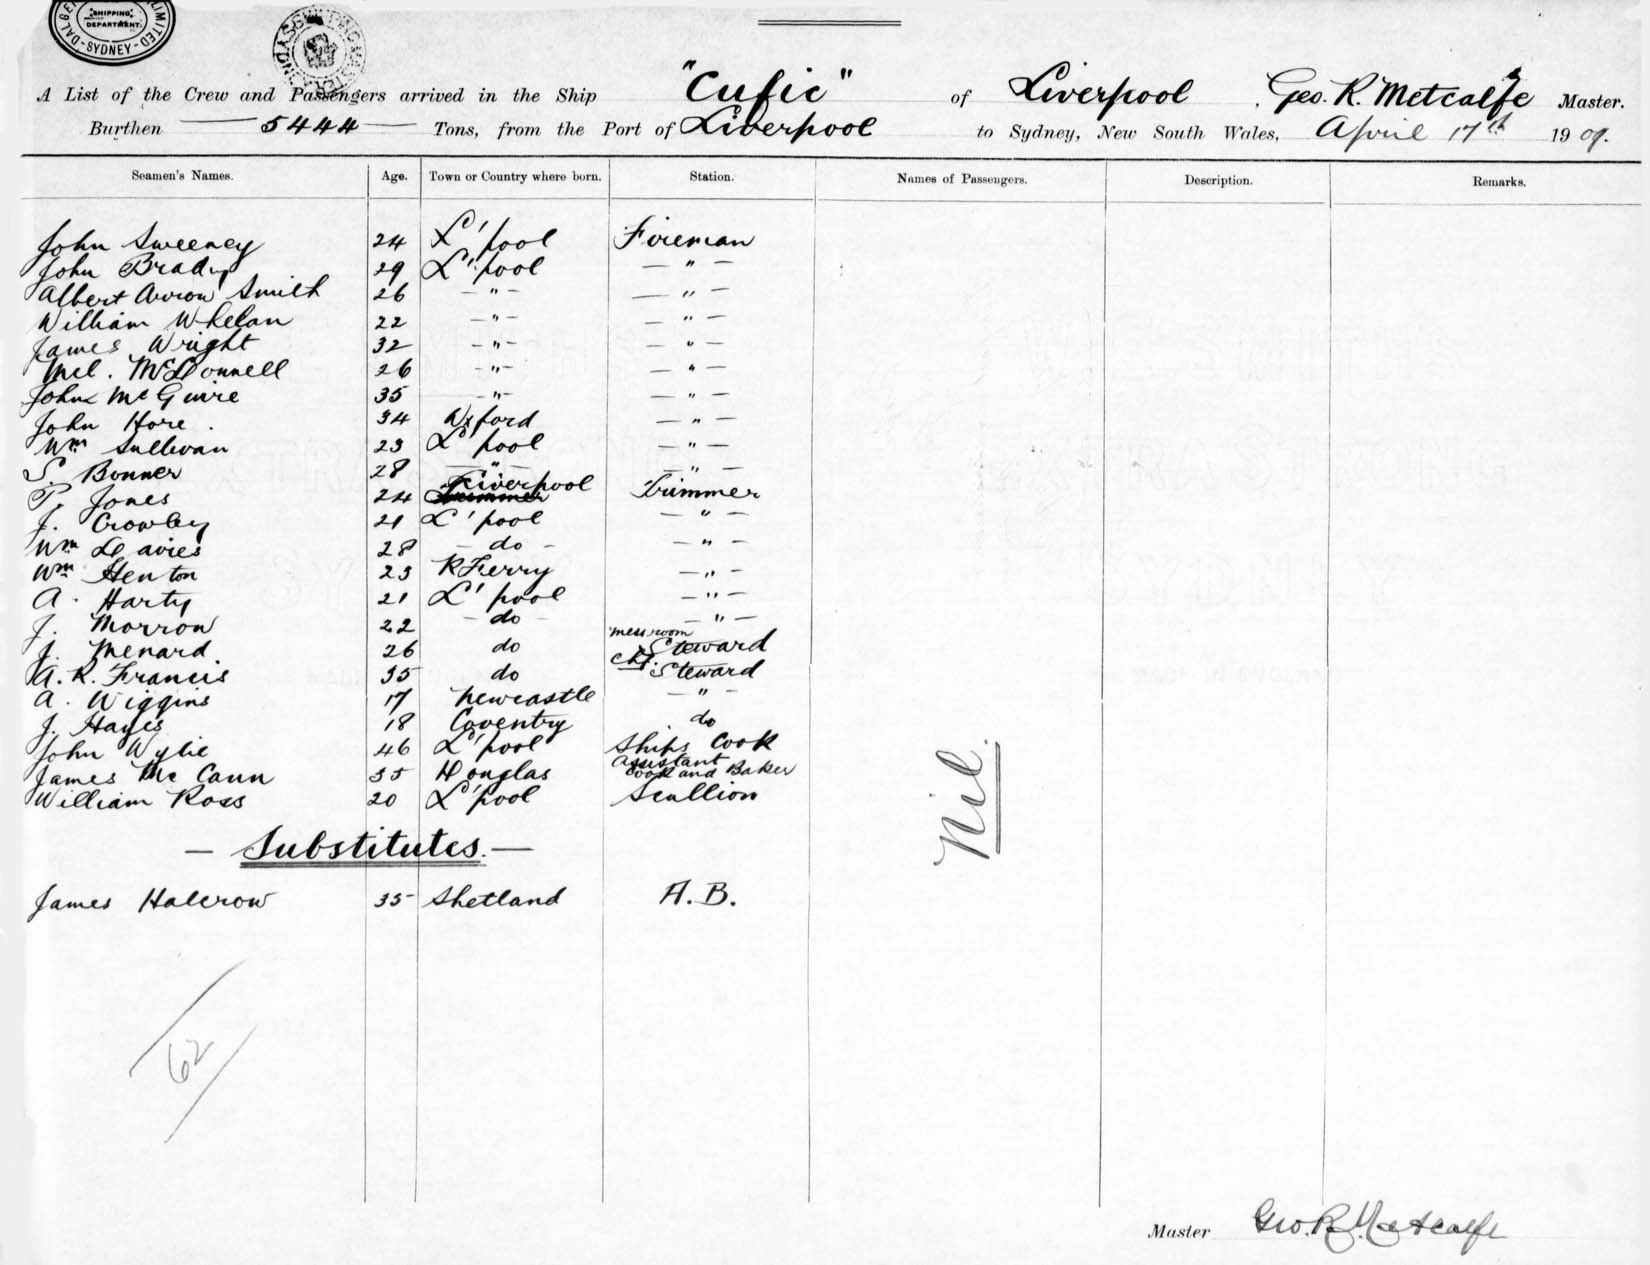 SHIPPING
DEPARTMENT.
SYDNEY
A List of the Crew and Passengers arrived in the Ship "Cufic" of Liverpool , Geo. R. Metcalfe Master.
Burthen 5444 Tons, from the Port of Liverpool to Sydney, New South Wales, April 17th 1909.
Seamen's Names. Age. Town or Country where born. Station. Names of Passengers. Description. Remarks.
John Sweeney 24 L'pool Fireman
John Brady 29 L'pool — " —
Albert Arrow Smith 26 — " — — " —
William Whelan 22 — " — — " —
James Wright 32 — " — — " —
Mcl. McDonnell 26 — " — — " —
John McGuire 35 — " — — " —
John Hore . 34 Wxford — " —
Wm Sullivan 23 L'pool — " —
S. Bonner 28 — " — — " —
T. Jones 24 Trimmer Liverpool Trimmer
J. Crowley 21 L'pool — " —
Wm Davies 28 — do — — " —
Wm Henton 23 R Ferry — " —
A. Harty 21 L'pool — " —
J. Morrow 22 — do — — " —
J. Menard 26 do mess room Steward
A. R. Francis 35 do Chf. Steward
A. Wiggins 17 Newcastle — " —
J. Hayes 18 Coventry do
John Wylie 46 L'pool Ships Cook
James McCann 35 Douglas Assistant Cook and Baker
William Ross 20 L'pool Scullion
Nil.
— Substitutes. —
James Halcrow 35 Shetland A.B.
62
Master Geo. R. Metcalfe